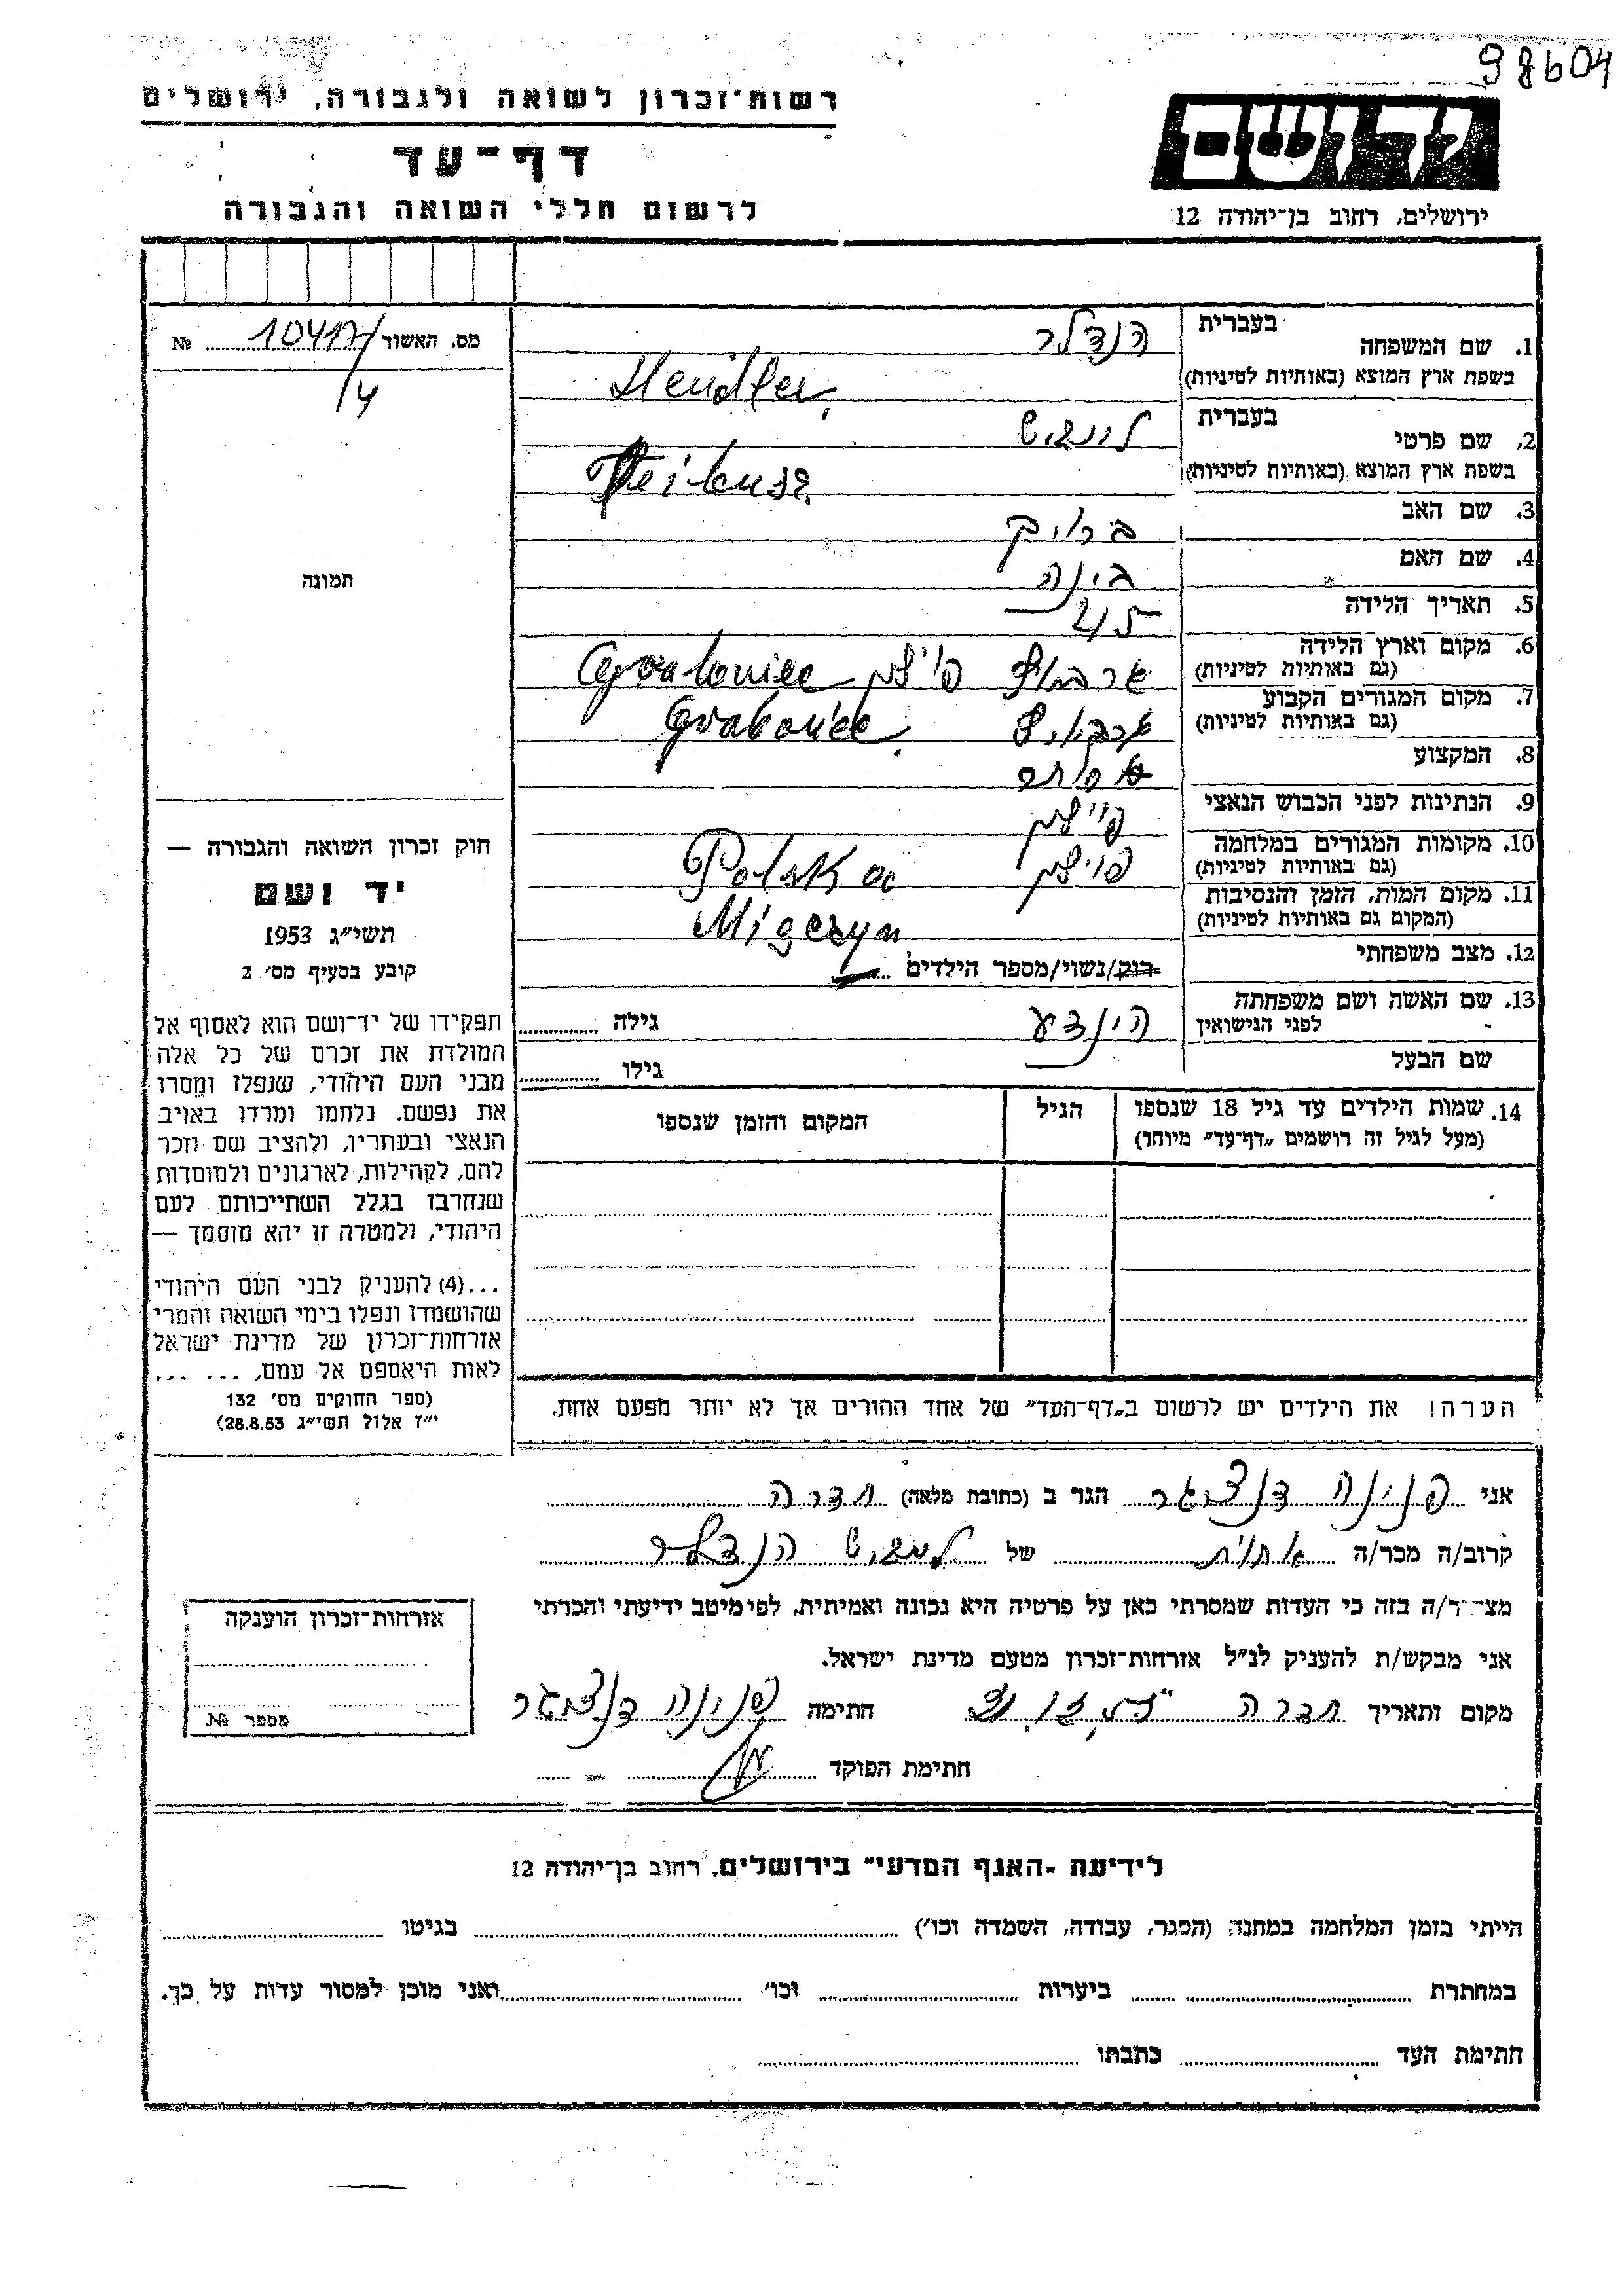 98604
רשות-זכרון לשואה ולגבורה, ירושלים
דף-עד
לרשום חללי השואה והגבורה
יד ושם
ירושלים, רחוב בן-יהודה 12
מס. האשור 10417/4 №
תמונה
חוק זכרון השואה והגבורה —
יד ושם
תשי״ג 1953
קובע בסעיף מס׳ 2
תפקידו של יד-ושם הוא לאסוף אל
המולדת את זכרם של כל אלה
מבני העם היהודי, שנפלו ומסרו
את נפשם. נלחמו ומרדו באויב
הנאצי ובעוזריו, ולהציב שם וזכר
להם, לקהילות, לארגונים ולמוסדות
שנחרבו בגלל השתייכותם לעם
היהודי, ולמטרה זו יהא מוסמך —
...(4) להעניק לבני העם היהודי
שהושמדו ונפלו בימי השואה והמרי
אזרחות-זכרון של מדינת ישראל
לאות היאספם אל עמם, ... ...
(ספר החוקים מס׳ 132
י״ז אלול תשי״ג 28.8.53)
1. שם המשפחה בעברית הנדלר
בשפת ארץ המוצא (באותיות לטיניות) Hendler
2. שם פרטי בעברית
בשפת ארץ המוצא (באותיות לטיניות)
3. שם האב
4. שם האם בינה
5. תאריך הלידה 45
6. מקום וארץ הלידה פוילן
(גם באותיות לטיניות)
7. מקום המגורים הקבוע
(גם באותיות לטיניות) Graboviec
8. המקצוע
9. הנתינות לפני הכבוש הנאצי פוילן
10. מקומות המגורים במלחמה פוילן Polska
(גם באותיות לטיניות)
11. מקום המות, הזמן והנסיבות
(המקום גם באותיות לטיניות) Migczyn
12. מצב משפחתי רווק/נשוי/מספר הילדים
13. שם האשה ושם משפחתה הינדע גילה
לפני הנישואין
שם הבעל גילו
14. שמות הילדים עד גיל 18 שנספו הגיל המקום והזמן שנספו
(מעל לגיל זה רושמים „דף-עד״ מיוחד)
הערה! את הילדים יש לרשום ב„דף-העד״ של אחד ההורים אך לא יותר מפעם אחת.
אני פנינה דנציגר הגר ב (כתובת מלאה) חדרה
קרוב/ה מכר/ה אחות של הנדלר
מצהיר/ה בזה כי העדות שמסרתי כאן על פרטיה היא נכונה ואמיתית, לפי מיטב ידיעתי והכרתי
אני מבקש/ת להעניק לנ״ל אזרחות-זכרון מטעם מדינת ישראל.
מקום ותאריך חדרה חתימה פנינה דנציגר
חתימת הפוקד
אזרחות-זכרון הוענקה
מספר №
לידיעת „האגף המדעי״ בירושלים, רחוב בן-יהודה 12
הייתי בזמן המלחמה במחנה (הסגר, עבודה, השמדה וכו׳) בגיטו
במחתרת ביערות וכו׳ ואני מוכן למסור עדות על כך.
חתימת העד כתבתו